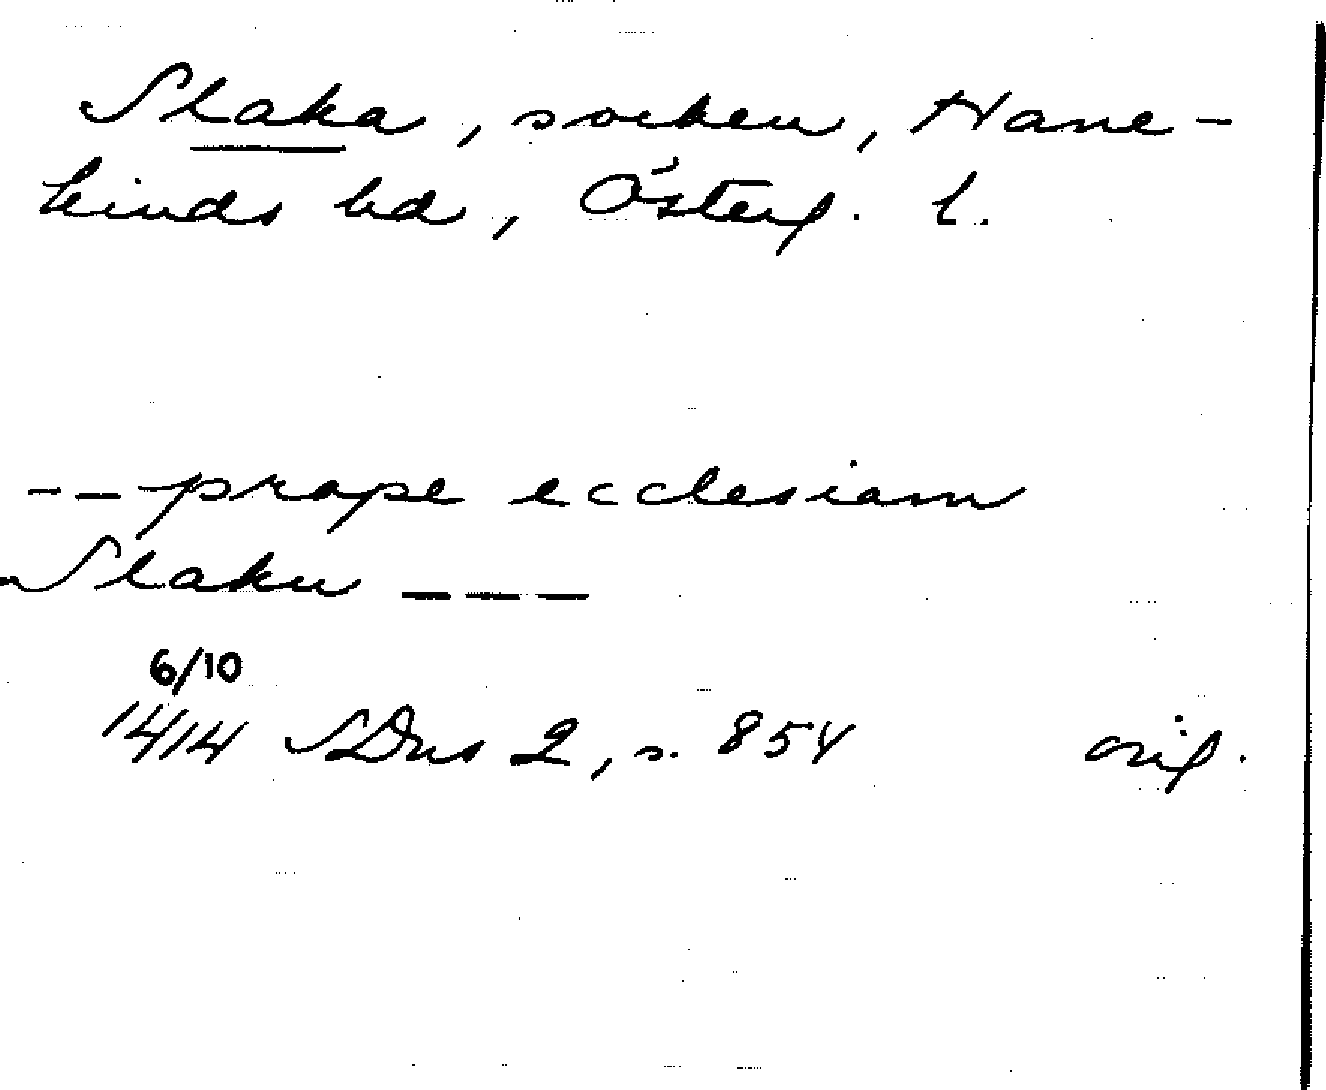 Slaka, socken, Hane-
kinds hd, Österg. l.
--- prope ecclesiam
Slaku ---
6/10
1414 SDns 2, s. 854 orig.